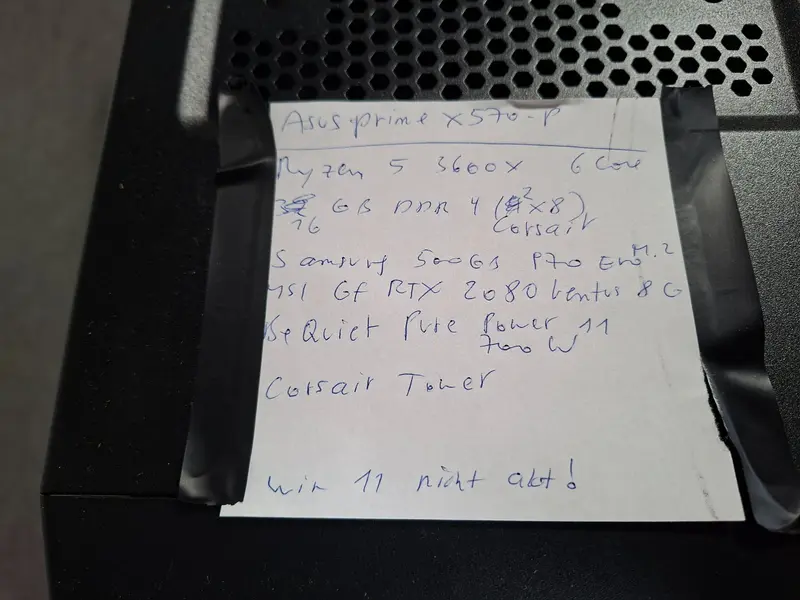 Asus prime X570-P
Ryzen 5 3600X 6 Core
16 GB DDR 4 (2x8)
Corsair
Samsung 500GB 970 Evo M.2
MSI GF RTX 2080 Ventus 8 G
Be Quiet Pure Power 11
700 W
Corsair Tower
Win 11 nicht akt!